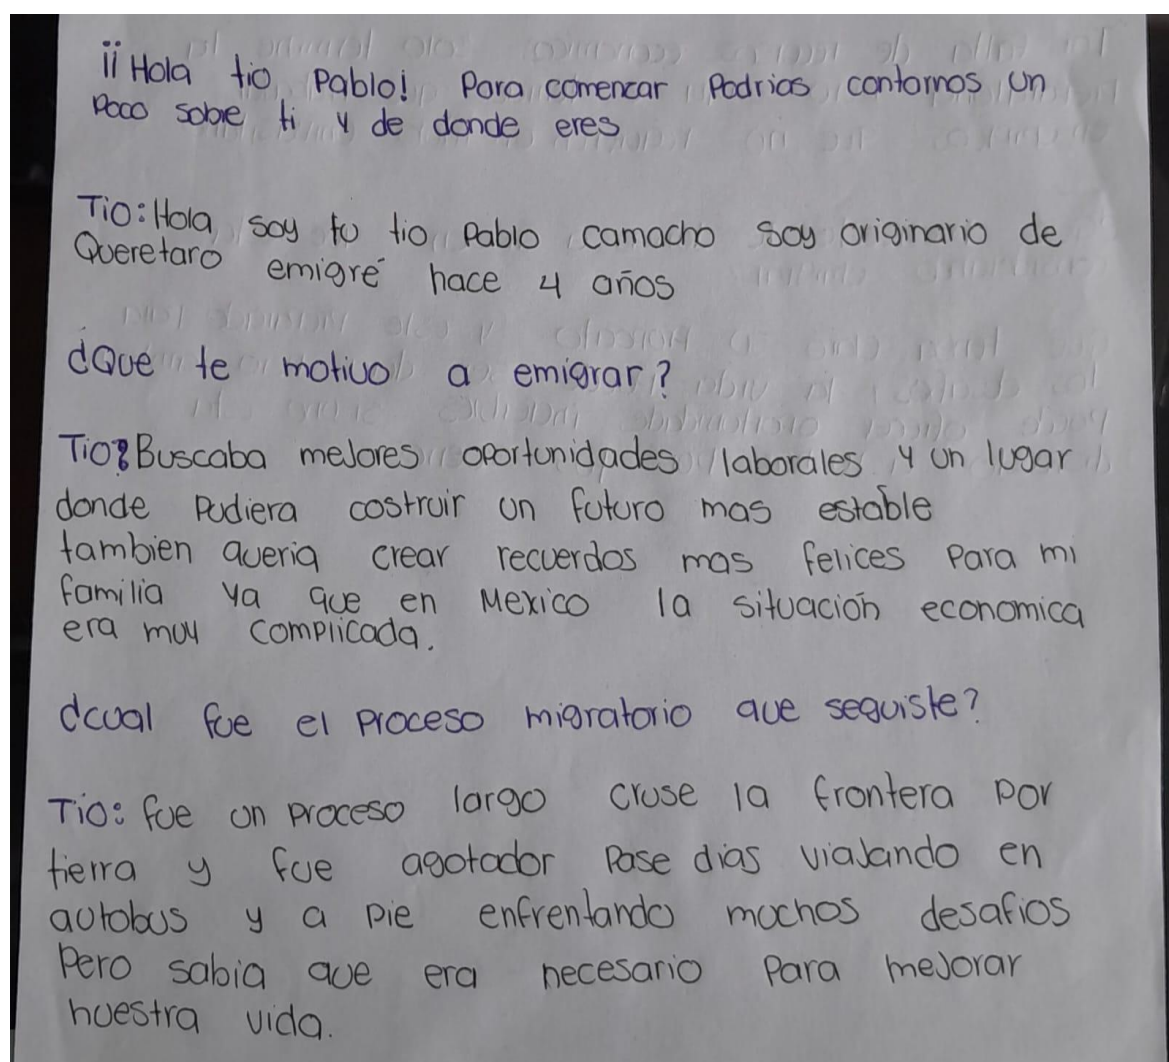 ¡¡Hola tio Pablo! Para comenzar Podrias contarnos un
Poco sobre ti y de donde eres
Tio: Hola soy tu tio Pablo camacho soy originario de
Queretaro emigré hace 4 años
¿Que te motivo a emigrar?
Tio: Buscaba mejores oportunidades laborales y un lugar
donde Pudiera costruir un futuro mas estable
tambien queria crear recuerdos mas felices Para mi
familia ya que en Mexico la situación economica
era muy complicada.
¿cual fue el Proceso migratorio que seguiste?
Tio: fue un proceso largo cruse la frontera por
tierra y fue agotador Pase dias viajando en
autobus y a pie enfrentando muchos desafios
Pero sabia que era necesario Para mejorar
nuestra vida.